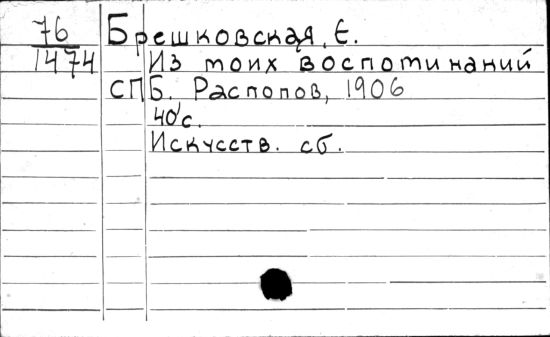 76 Брешковская, Е.
1474 Из моих воспоминаний
СПБ. Распопов, 1906
40 с.
Искусств. сб.